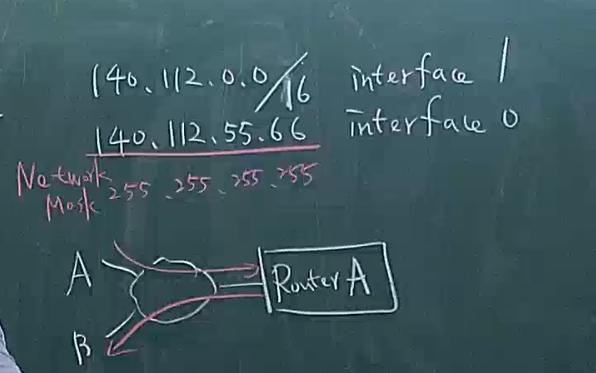 140.112.0.0/16 interface 1
140.112.55.66 interface 0
Network Mask 255.255.255.255
A
Router A
B